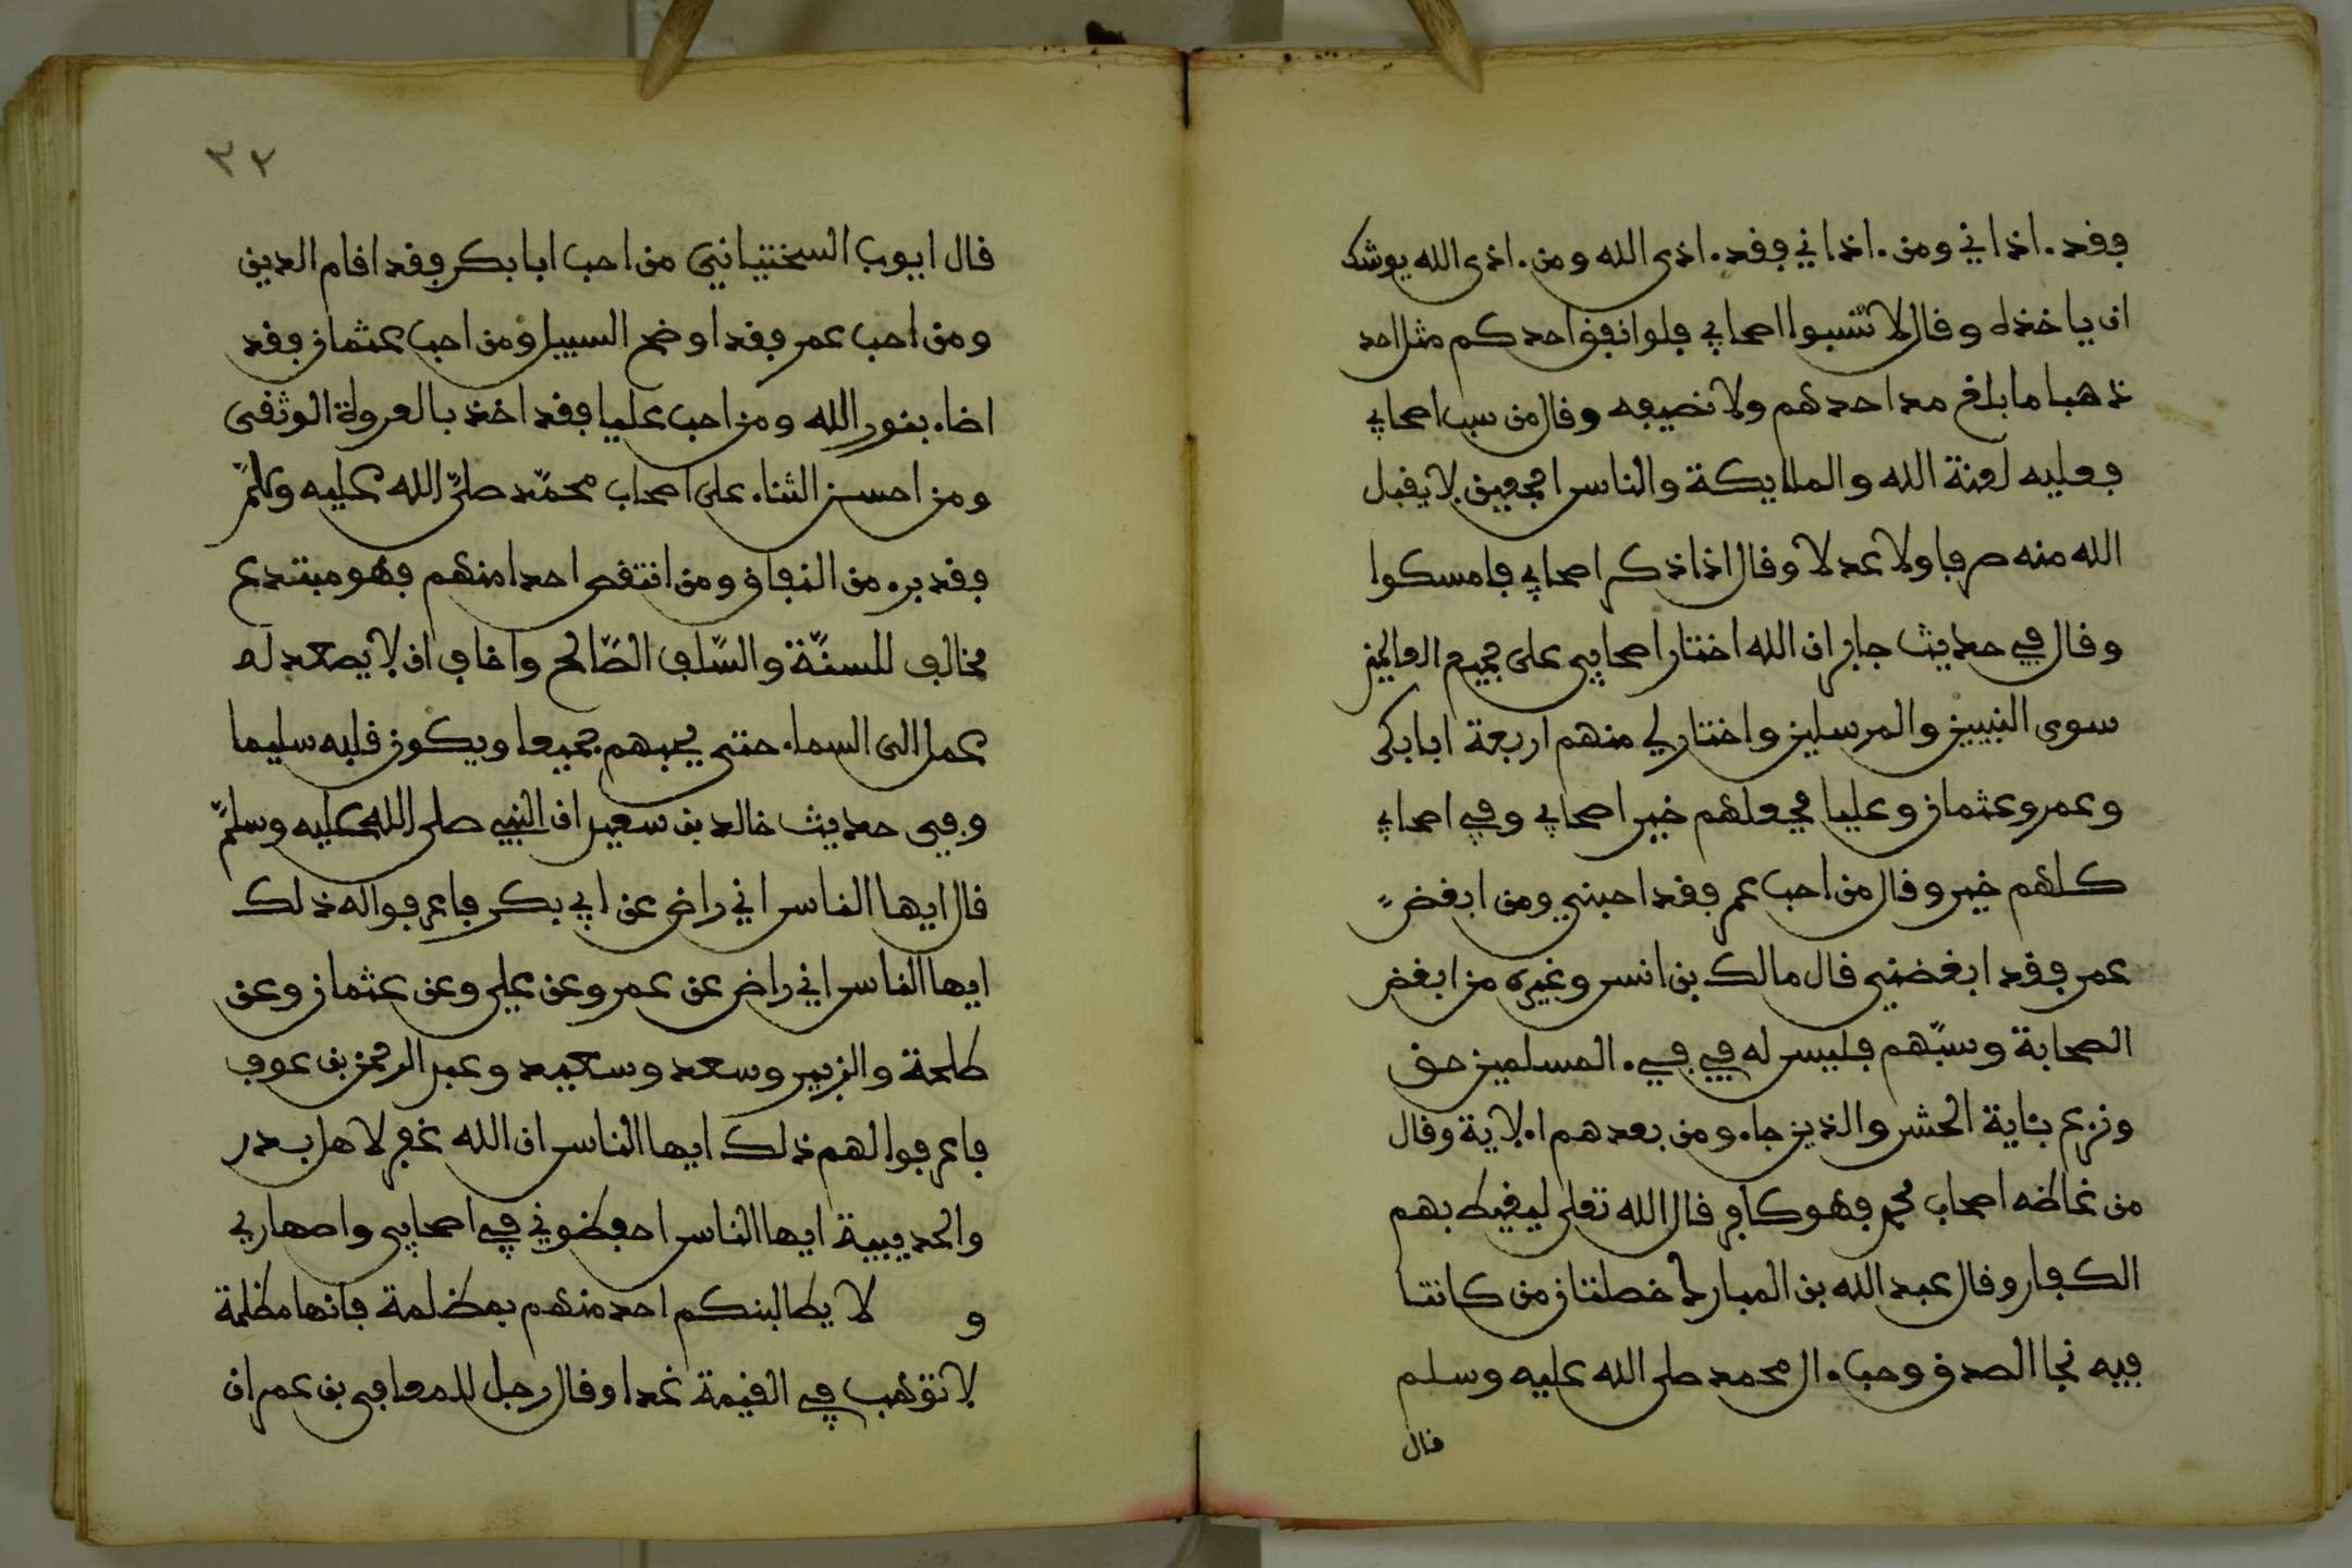 فقد. اذاني ومن. اذاني فقد. اذى الله ومن. اذى الله يوشك
ان ياخذه وقال لا تسبوا اصحابي فلو انفق احدكم مثل احد
ذهبا ما بلغ مد احدهم ولا نصيفه وقال من سب اصحابي
فعليه لعنة الله والملايكة والناس اجمعين لا يقبل
الله منه صرفا ولا عدلا وقال اذا ذكر اصحابي فامسكوا
وقال في حديث جابر ان الله اختار اصحابي على جميع العالمين
سوى النبيين والمرسلين واختار لي منهم اربعة ابا بكر
وعمر وعثمان وعليا فجعلهم خير اصحابي وفي اصحابي
كلهم خير وقال من احب عمر فقد احبني ومن ابغض
عمر فقد ابغضني قال مالك بن انس وغيره من ابغض
الصحابة وسبّهم فليس له في فيء المسلمين حق
ونزع بئاية الحشر والذين جاءو من بعدهم الاية وقال
من غاظه اصحاب محمد فهو كافر قال الله تعلى ليغيظ بهم
الكفار وقال عبد الله بن المبارك خصلتان من كانتا
فيه نجا الصدق وحب ءال محمد صلى الله عليه وسلم
قال
٣٢
قال ايوب السختياني من احب ابا بكر فقد اقام الدين
ومن احب عمر فقد اوضح السبيل ومن احب عثمان فقد
اضاء بنور الله ومن احب عليا فقد اخذ بالعروة الوثقى
ومن احسن الثناء على اصحاب محمّد صلّى الله عليه وسلّم
فقد برء من النفاق ومن انتقص احدا منهم فهو مبتدع
مخالف للسنّة والسّلف الصّالح واخاف ان لا يصعد له
عمل الى السماء حتى يحبهم جميعا ويكون قلبه سليما
وفي حديث خالد بن سعيد ان النبي صلى الله عليه وسلّم
قال ايها الناس اني راض عن ابي بكر فاعرفوا له ذلك
ايها الناس اني راض عن عمر وعن علي وعن عثمان وعن
طلحة والزبير وسعد وسعيد وعبد الرحمن بن عوف
فاعرفوا لهم ذلك ايها الناس ان الله غفر لاهل بدر
والحديبية ايها الناس احفظوني في اصحابي واصهاري
و لا يطالبنكم احد منهم بمظلمة فانها مظلمة
لا توهب في القيمة غدا وقال رجل للمعافى بن عمران